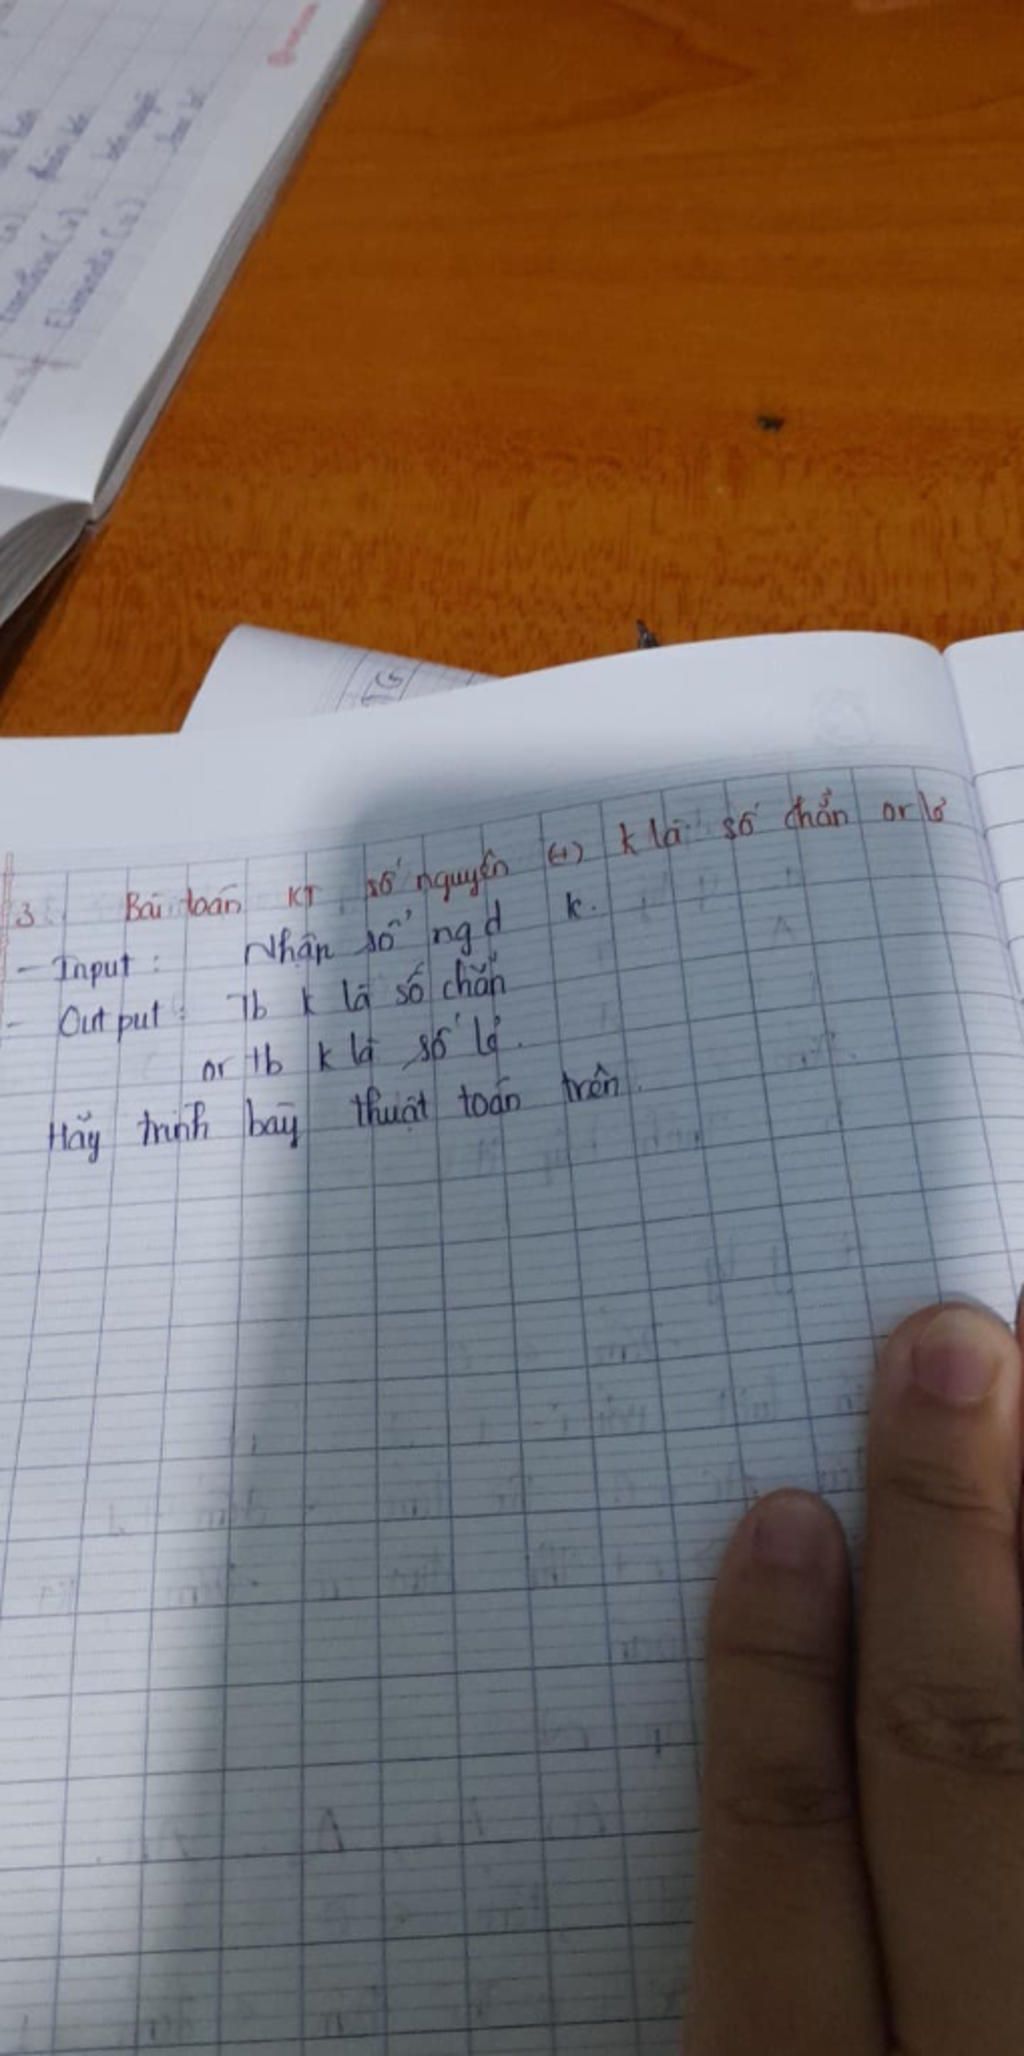 Elements (s)
3. Bài toán KT số nguyên (+) k là số chẵn or lẻ
- Input: Nhập số ng d k.
- Output: Tb k là số chẵn
or tb k là số lẻ.
Hãy trình bày thuật toán trên.